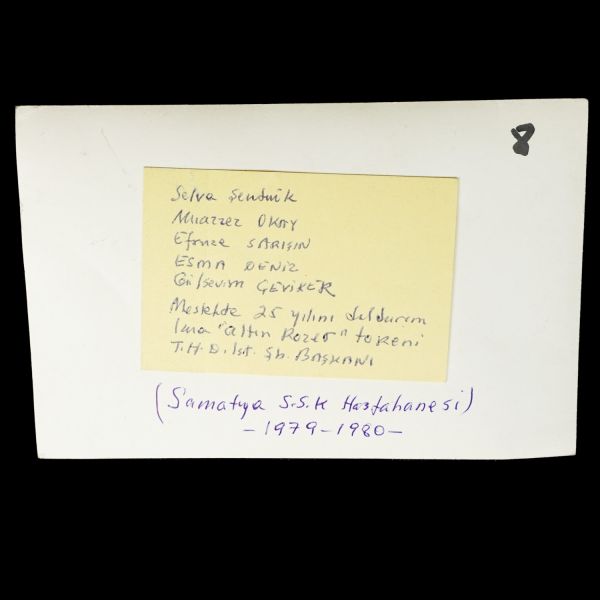 8
Selva Şendnik
Muazzez OKAY
Efruze SARIŞIN
ESMA DENİZ
Gülsevim ÇEVİKER
Meslekte 25 yılını dolduran
"altın Rozet" töreni
T.H.D. İst. Şb. BAŞKANI
(Samatya S.S.K Hastahanesi)
- 1979 - 1980 -